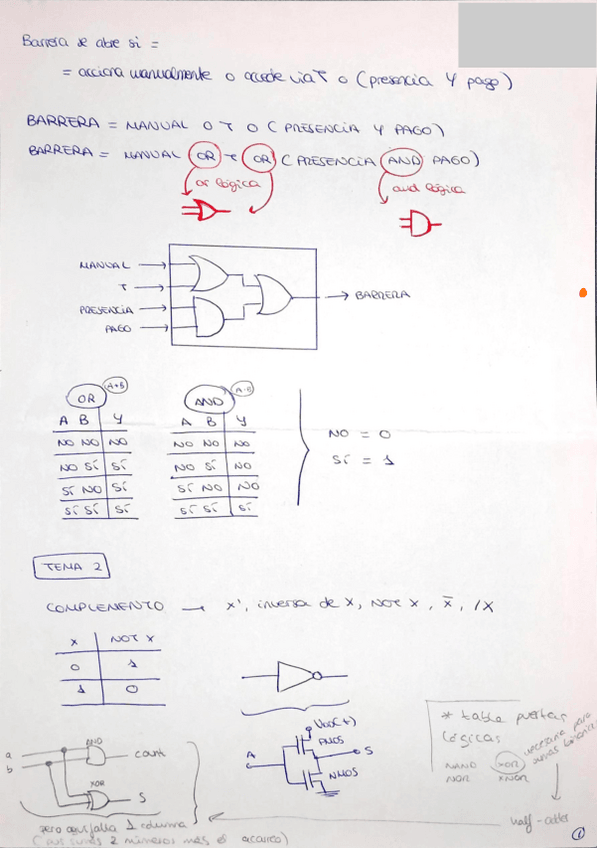 Barrera se abre si =
= acciona manualmente o accede via T o (presencia Y pago)
BARRERA = MANUAL O T O (PRESENCIA Y PAGO)
BARRERA = MANUAL OR T OR (PRESENCIA AND PAGO)
or lógica
and lógica
MANUAL
T
PRESENCIA
PAGO
BARRERA
OR A+B
A B Y
NO NO NO
NO SÍ SÍ
SÍ NO SÍ
SÍ SÍ SÍ
AND A·B
A B Y
NO NO NO
NO SÍ NO
SÍ NO NO
SÍ SÍ SÍ
NO = 0
SÍ = 1
TEMA 2
COMPLEMENTO → X', inversa de X, NOT X, X̅, /X
X NOT X
0 1
1 0
VDD(+)
PMOS
A
S
NMOS
* tabla puertas
lógicas
NAND XOR
NOR XNOR
necesaria para
sumas binarias
half-adder
a
b
AND
cout
XOR
S
pero aquí falta 1 columna
(sumas 2 números más el acarreo)
1